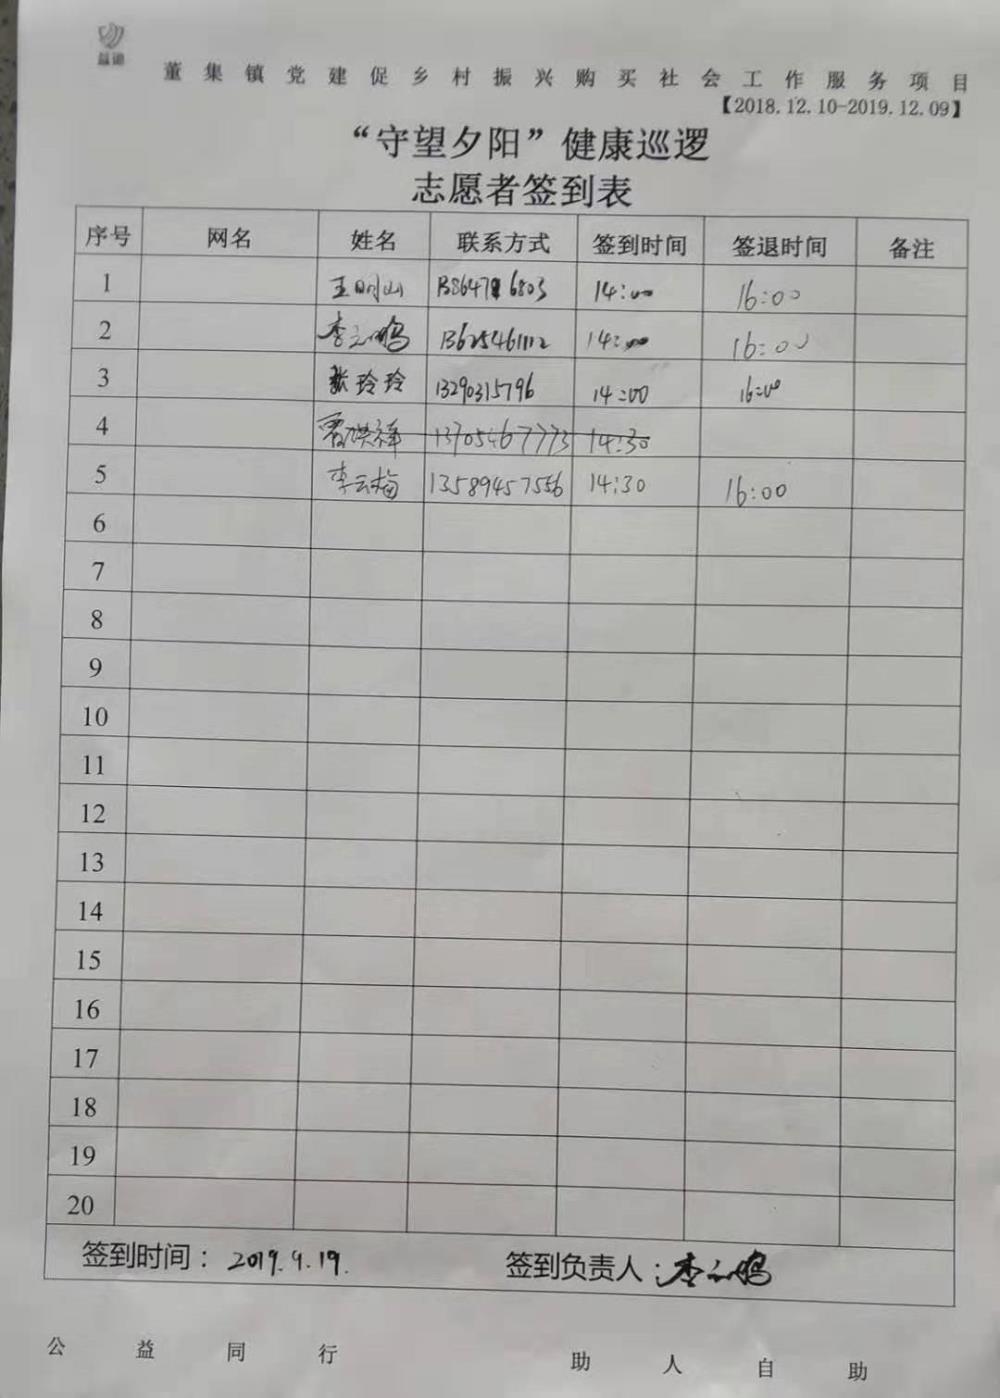 益通
董集镇党建促乡村振兴购买社会工作服务项目
【2018.12.10-2019.12.09】
“守望夕阳”健康巡逻
志愿者签到表
序号 网名 姓名 联系方式 签到时间 签退时间 备注
1 王明山 14:00 16:00
2 13625461112 14:00 16:00
3 张玲玲 13290315796 14:00 16:00
4 13705467773 14:30
5 李云梅 13589457556 14:30 16:00
6
7
8
9
10
11
12
13
14
15
16
17
18
19
20
签到时间：2019.9.19. 签到负责人：
公益同行 助人自助